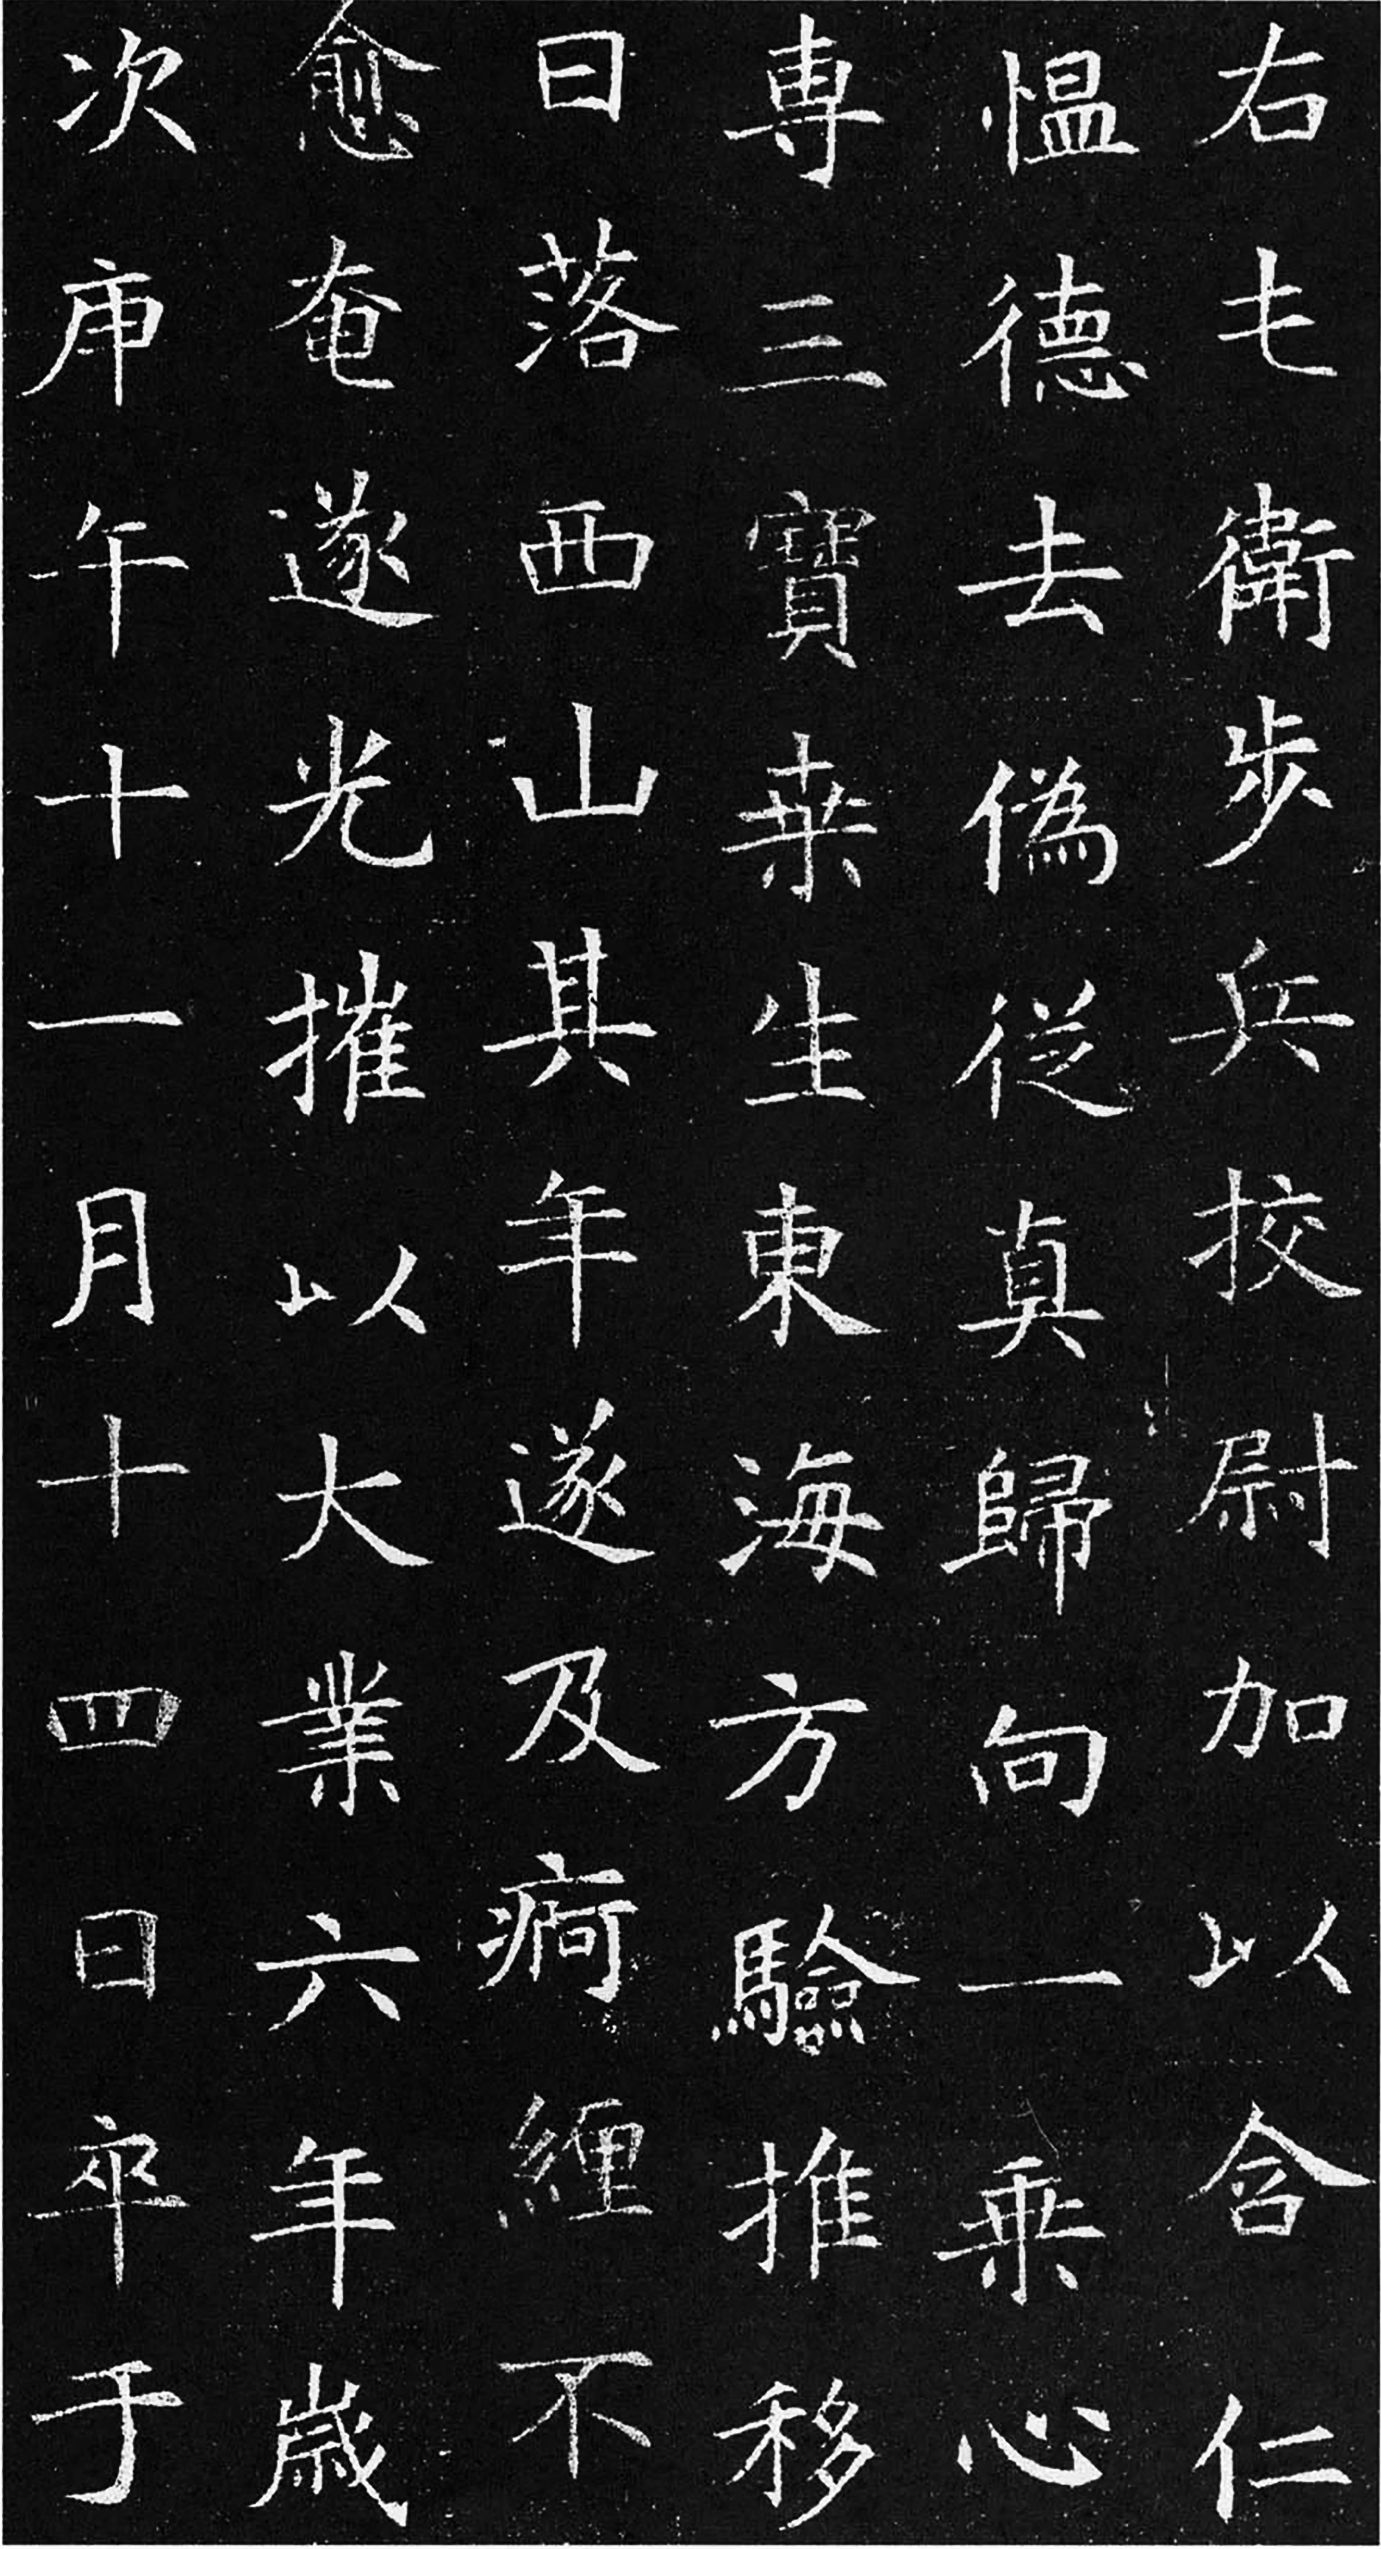 右屯衛步兵挍尉加以含仁
愠德去偽従真歸向一乗心
專三寶桒生東海方驗推移
日落西山其年遂及痾纏不
愈奄遂光摧以大業六年歲
次庚午十一月十四日卒于